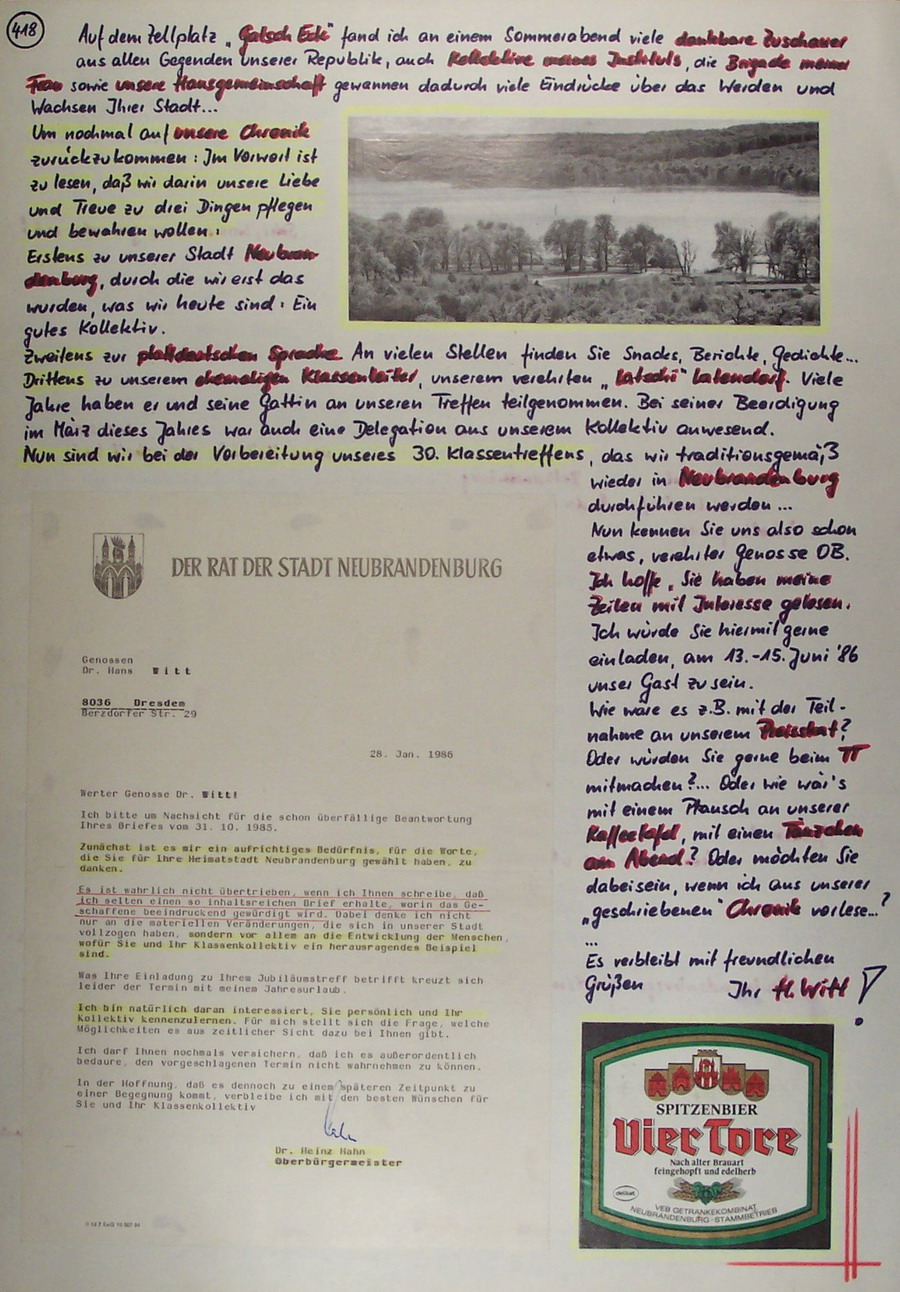 418
Auf dem Zeltplatz „Gatsch Eck" fand ich an einem Sommerabend viele dankbare Zuschauer
aus allen Gegenden unserer Republik, auch Kollektive meines Instituts, die Brigade meiner
Frau sowie unsere Hausgemeinschaft gewannen dadurch viele Eindrücke über das Werden und
Wachsen Ihrer Stadt...
Um nochmal auf unsere Chronik
zurückzukommen: Im Vorwort ist
zu lesen, daß wir darin unsere Liebe
und Treue zu drei Dingen pflegen
und bewahren wollen:
Erstens zu unserer Stadt Neubran-
denburg, durch die wir erst das
wurden, was wir heute sind: Ein
gutes Kollektiv.
Zweitens zur plattdeutschen Sprache. An vielen Stellen finden Sie Snacks, Berichte, Gedichte...
Drittens zu unserem ehemaligen Klassenleiter, unserem verehrten „Latschi" Latendorf. Viele
Jahre haben er und seine Gattin an unseren Treffen teilgenommen. Bei seiner Beerdigung
im März dieses Jahres war auch eine Delegation aus unserem Kollektiv anwesend.
Nun sind wir bei der Vorbereitung unseres 30. Klassentreffens, das wir traditionsgemäß
wieder in Neubrandenburg
durchführen werden...
Nun kennen Sie uns also schon
etwas, verehrter Genosse OB.
Ich hoffe, Sie haben meine
Zeilen mit Interesse gelesen.
Ich würde Sie hiermit gerne
einladen, am 13.-15. Juni '86
unser Gast zu sein.
Wie wäre es z.B. mit der Teil-
nahme an unserem Preisskat?
Oder würden Sie gerne beim TT
mitmachen?... Oder wie wär's
mit einem Plausch an unserer
Kaffeetafel, mit einen Tänzchen
am Abend? Oder möchten Sie
dabeisein, wenn ich aus unserer
„geschriebenen" Chronik vorlese...?
...
Es verbleibt mit freundlichen
Grüßen Ihr H. Witt!
DER RAT DER STADT NEUBRANDENBURG
Genossen
Dr. Hans Witt
8036 Dresden
Berzdorfer Str. 29
28. Jan. 1986
Werter Genosse Dr. Witt!
Ich bitte um Nachsicht für die schon überfällige Beantwortung
Ihres Briefes vom 31. 10. 1985.
Zunächst ist es mir ein aufrichtiges Bedürfnis, für die Worte,
die Sie für Ihre Heimatstadt Neubrandenburg gewählt haben, zu
danken.
Es ist wahrlich nicht übertrieben, wenn ich Ihnen schreibe, daß
ich selten einen so inhaltsreichen Brief erhalte, worin das Ge-
schaffene beeindruckend gewürdigt wird. Dabei denke ich nicht
nur an die materiellen Veränderungen, die sich in unserer Stadt
vollzogen haben, sondern vor allem an die Entwicklung der Menschen,
wofür Sie und Ihr Klassenkollektiv ein herausragendes Beispiel
sind.
Was Ihre Einladung zu Ihrem Jubiläumstreff betrifft kreuzt sich
leider der Termin mit meinem Jahresurlaub.
Ich bin natürlich daran interessiert, Sie persönlich und Ihr
Kollektiv kennenzulernen. Für mich stellt sich die Frage, welche
Möglichkeiten es aus zeitlicher Sicht dazu bei Ihnen gibt.
Ich darf Ihnen nochmals versichern, daß ich es außerordentlich
bedaure, den vorgeschlagenen Termin nicht wahrnehmen zu können.
In der Hoffnung, daß es dennoch zu einem späteren Zeitpunkt zu
einer Begegnung kommt, verbleibe ich mit den besten Wünschen für
Sie und Ihr Klassenkollektiv
Dr. Heinz Hahn
Oberbürgermeister
SPITZENBIER
Vier Tore
Nach alter Brauart
feingehopft und edelherb
delikat
VEB GETRÄNKEKOMBINAT
NEUBRANDENBURG-STAMMBETRIEB